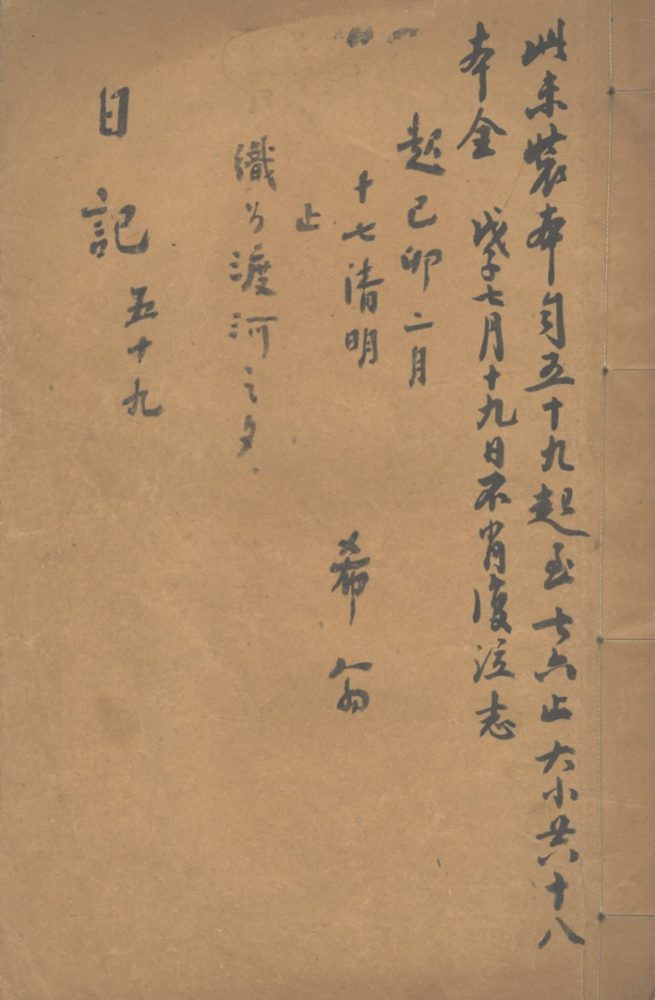 此未裝本自五十九起至七六止大小共十八
本全 戊子七月十九日不肖復志
起己卯二月
十七清明
止
織女渡河之夕
希翁
日記 五十九